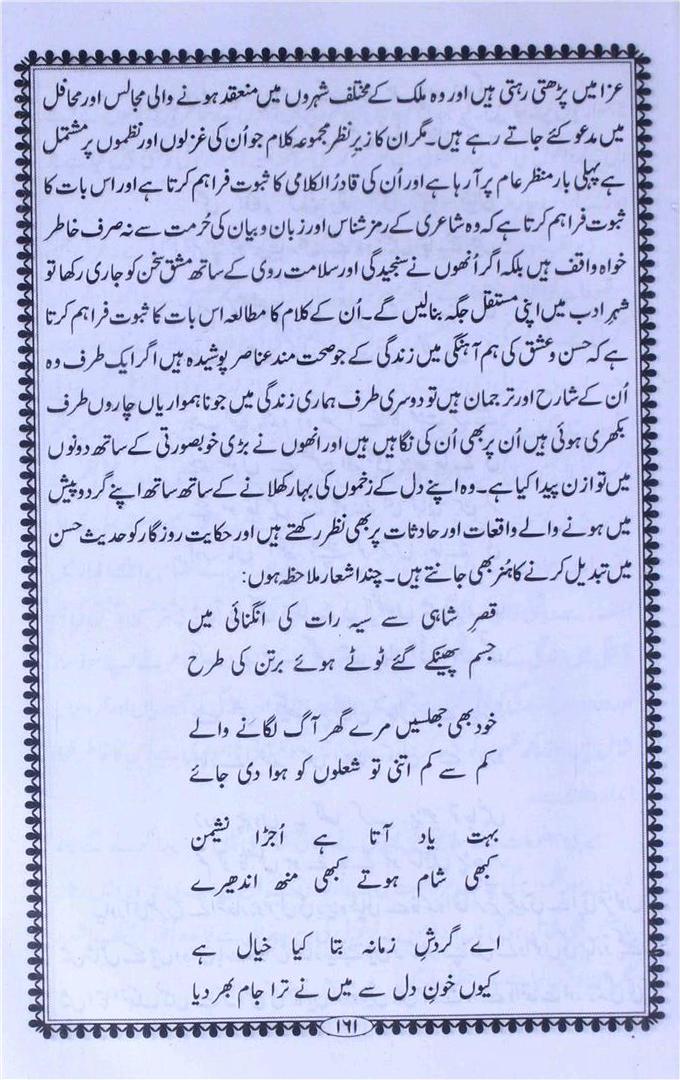 عزا میں پڑھتی رہتی ہیں اور وہ ملک کے مختلف شہروں میں منعقد ہونے والی مجالس اور محافل
میں مدعو کئے جاتے رہے ہیں۔ مگر ان کا زیرِ نظر مجموعہ کلام جو اُن کی غزلوں اور نظموں پر مشتمل
ہے پہلی بار منظر عام پر آ رہا ہے اور اُن کی قادرُ الکلامی کا ثبوت فراہم کرتا ہے اور اس بات کا
ثبوت فراہم کرتا ہے کہ وہ شاعری کے رمز شناس اور زبان و بیان کی حُرمت سے نہ صرف خاطر
خواہ واقف ہیں بلکہ اگر اُنھوں نے سنجیدگی اور سلامت روی کے ساتھ مشقِ سخن کو جاری رکھا تو
شہرِ ادب میں اپنی مستقل جگہ بنالیں گے۔ اُن کے کلام کا مطالعہ اس بات کا ثبوت فراہم کرتا
ہے کہ حسن و عشق کی ہم آہنگی میں زندگی کے جو صحت مند عناصر پوشیدہ ہیں اگر ایک طرف وہ
اُن کے شارح اور ترجمان ہیں تو دوسری طرف ہماری زندگی میں جو ناہمواریاں چاروں طرف
بکھری ہوئی ہیں اُن پر بھی اُن کی نگاہیں ہیں اور انھوں نے بڑی خوبصورتی کے ساتھ دونوں
میں توازن پیدا کیا ہے۔ وہ اپنے دل کے زخموں کی بہار کھلانے کے ساتھ ساتھ اپنے گرد و پیش
میں ہونے والے واقعات اور حادثات پر بھی نظر رکھتے ہیں اور حکایت روزگار کو حدیث حسن
میں تبدیل کرنے کا ہُنر بھی جانتے ہیں۔ چند اشعار ملاحظہ ہوں:
قصرِ شاہی سے سیہ رات کی انگنائی میں
جسم پھینکے گئے ٹوٹے ہوئے برتن کی طرح
خود بھی جھلسیں مرے گھر آگ لگانے والے
کم سے کم اتنی تو شعلوں کو ہوا دی جائے
بہت یاد آتا ہے اُجڑا نشیمن
کبھی شام ہوتے کبھی منھ اندھیرے
اے گردشِ زمانہ بتا کیا خیال ہے
کیوں خونِ دل سے میں نے ترا جام بھر دیا
۱۶۱